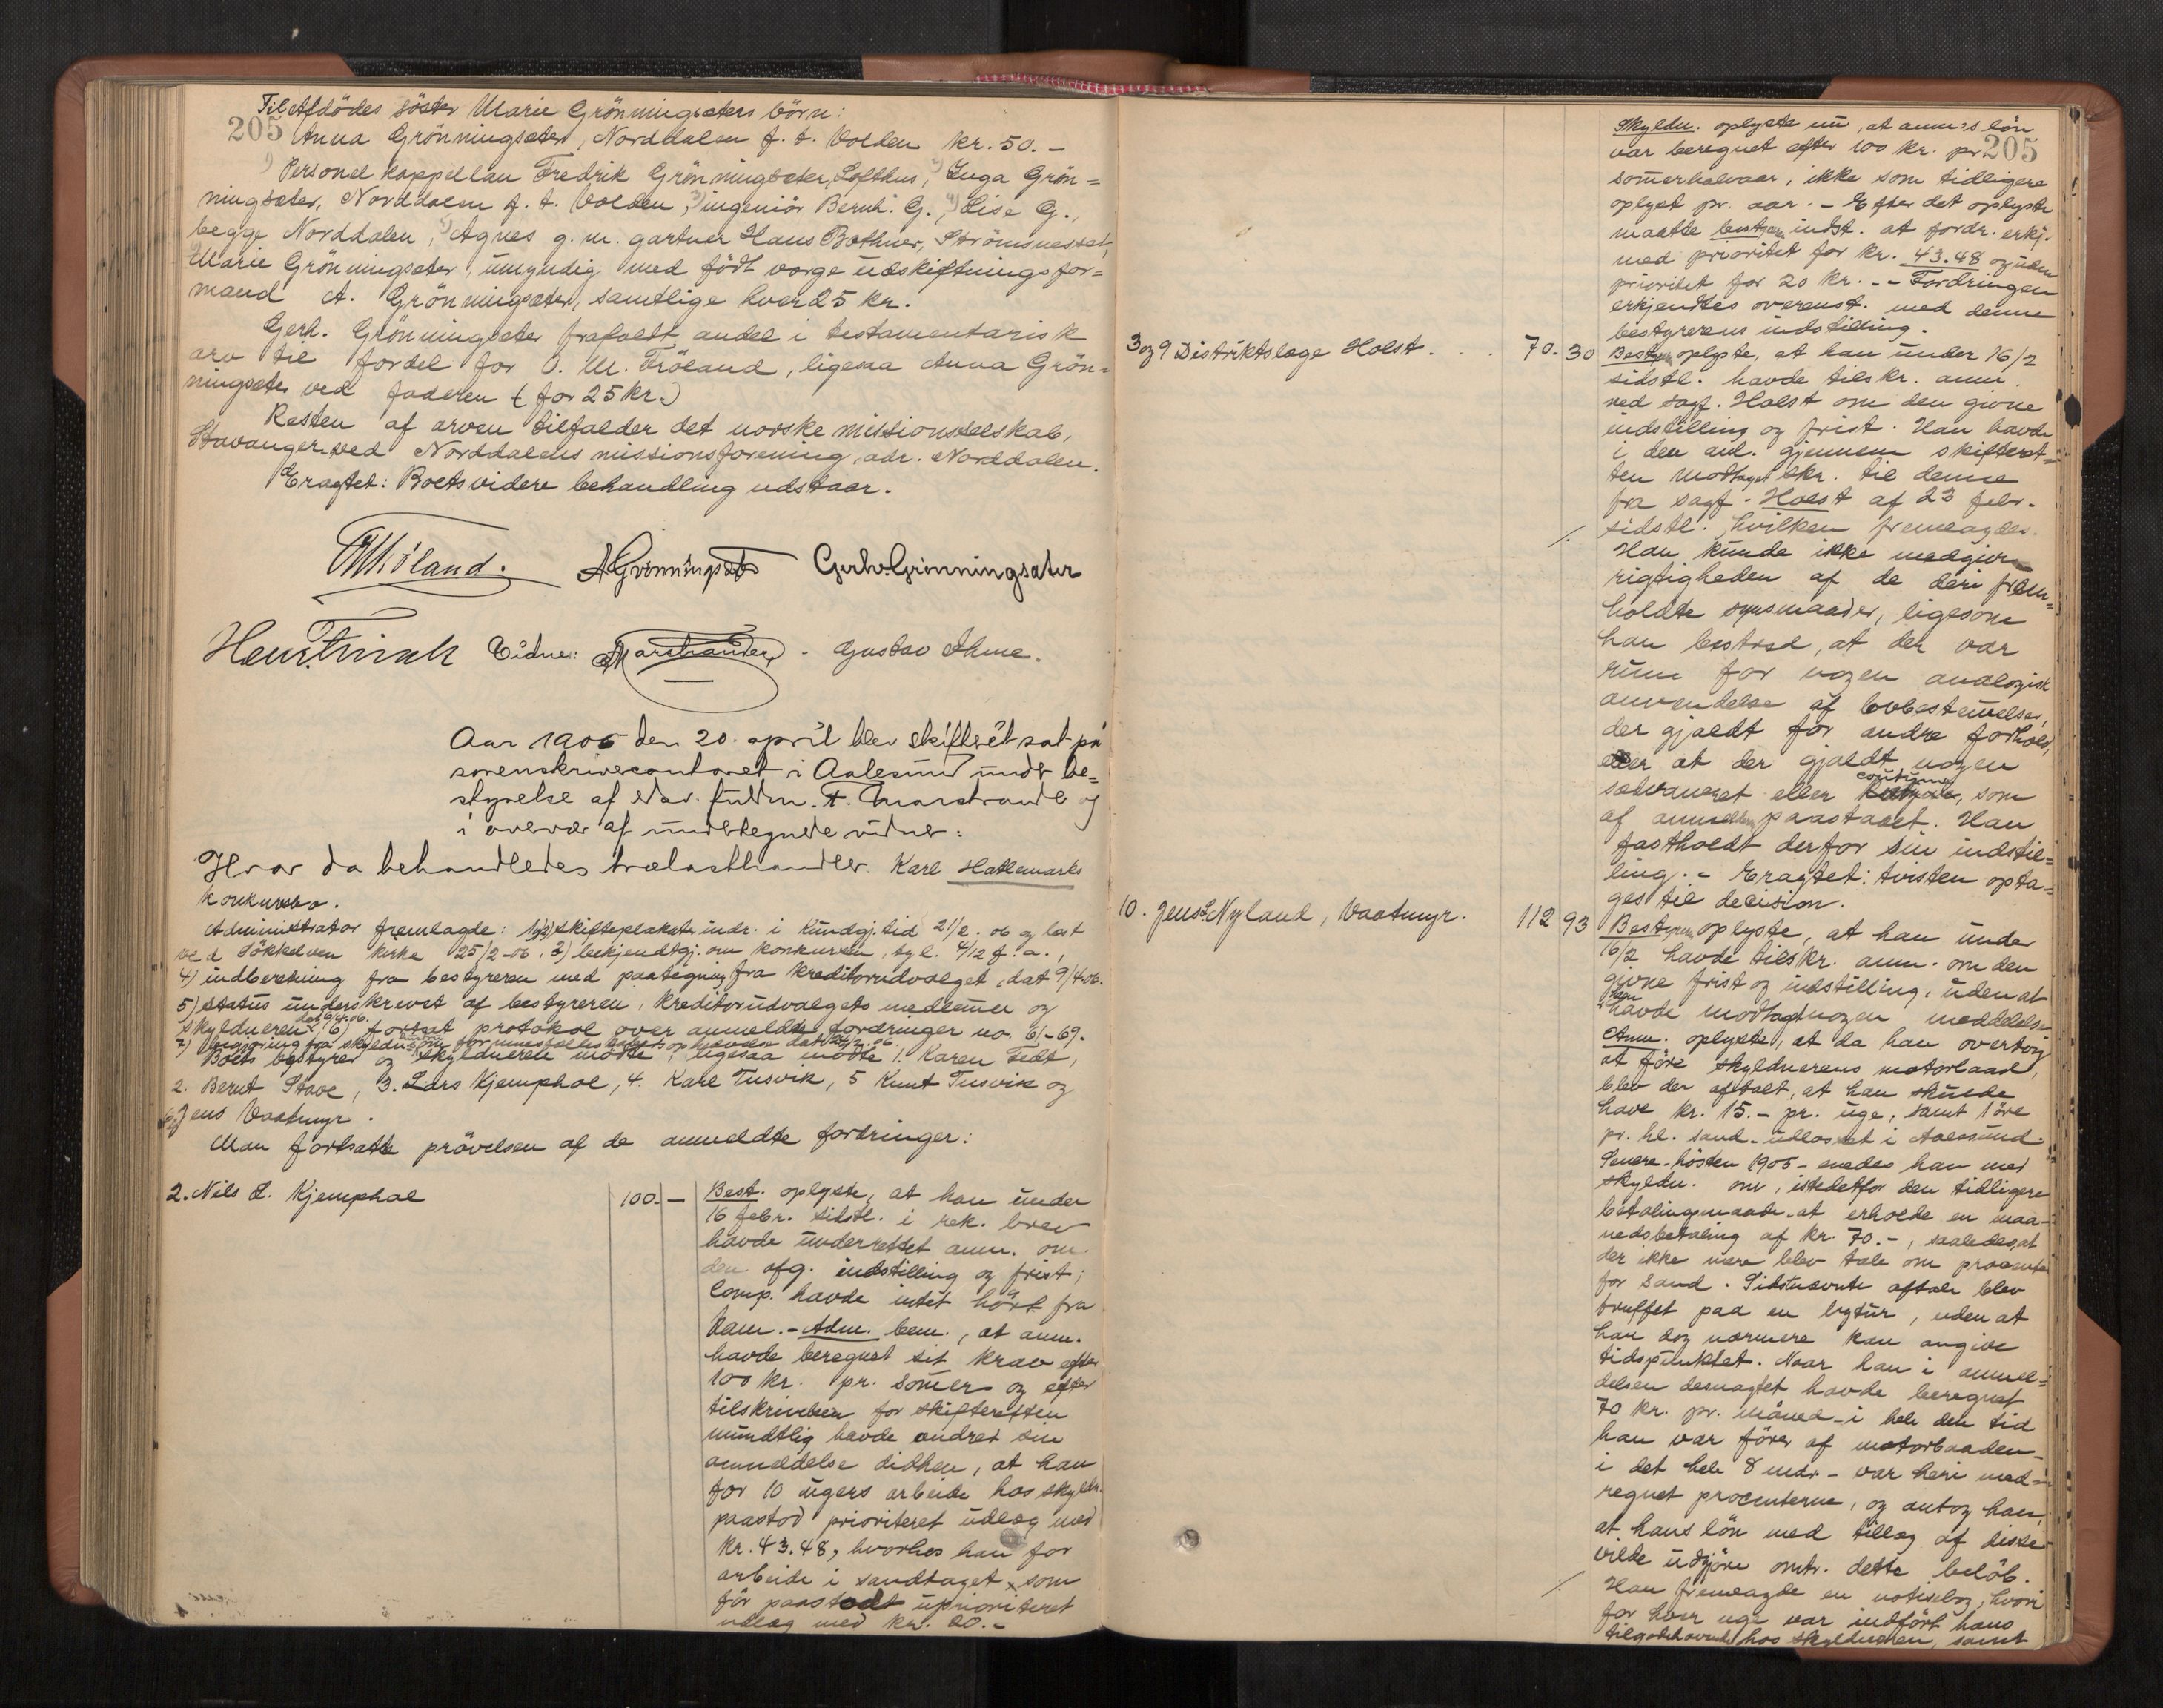 Til Afdödes söster Marie Grönningsæters börn:
205
Anna Grönningsæter, Norddalen f. t. Volden kr. 50.-
1) Personel kappellan Fredrik Grönningsæter, Lofthus, 2) Inga Grön=
ningsæter, Norddalen f. t. Volden, 3) ingeniör Bernh. G., 4) Lise G.,
begge Norddalen, 5) Agnes g. m. gartner Hans Bothner, Strömsnesset,
Marie Grönningsæter, umyndig med födt værge udskiftningsfor=
mand A. Grönningsæter, samtlige hver 25 kr.
Gerh. Grönningsæter frafaldt andel i testamentarisk
arv til fordel for O. M. Fröland, ligesaa Anna Grön=
ningsæter ved faderen (for 25 kr.)
Resten af arven tilfalder det norske missionsselskab,
Stavanger ved Norddalens missionsforening, adr. Norddalen.
Eragtet: Boets videre behandling udstaar.
A Grönningsæter Gerh. Grönningsæter
Vidne: Marstrander - Gustav Thue.
Aar 1906 den 20. april blev skifteret sat på
sorenskrivercontoret i Aalesund under be=
styrelse af edsv. fuldm. A. Marstrander og
i overvær af undertegnede vidner:
Hvor da behandledes trælasthandler Karl Hatlemarks
konkursbo.
Administrator fremlagde: 1 og 2) skifteplakate indr. i Kundgj. tid 21/2. 06 og læst
ved Sökkelven kirke 25/2-06, 3) bekjendtgj. om konkursen, tgl. 4/12 f. a.,
4) indberetning fra bestyreren med paategning fra kreditorudvalget, dat 9/4-06.
5) status underskrevet af bestyreren, kreditorudvalgets medlemer og
skyldneren, dat 6/4. 06. 6) fortsat protokol over anmeldte fordringer no. 61-69.
Boets bestyrer og skyldneren mödte, ligesaa mödte 1. Karen Tedt,
2. Bernt Stave, 3. Lars Kjemphol, 4. Karl Tusvik, 5 Knut Tusvik og
6) Jens Vaatmyr.
Man fortsatte prövelsen af de anmeldte fordringer:
2. Nils L. Kjemphol 100. -
Best. oplyste, at han under
16 febr. sidstl. i rek. brev
havde underrettet anm. om
den afg. indstilling og frist;
Comp. havde intet hört fra
ham. - Adm. bem., at anm.
havde beregnet sit krav efter
100 kr. pr. somer og efter
tilskrivelsen for skifteretten
mundtlig havde ændret sin
anmeldelse didhen, at han
for 10 ugers arbeide hos skyldn.
paastod prioriteret udlæg med
kr. 43.48, hvorhos han for
arbeide i sandtaget, som
för paastodt uprioriteret
udlæg med kr. 20.-
Skyldn. oplyste nu, at anm's lön
205
var beregnet efter 100 kr. pr.
somerhalvaar, ikke som tidligere
oplyst pr. aar. - Efter det oplyste
maatte bestyreren indst. at fordr. erkj.
med prioritet for kr. 43.48 og uden
prioritet for 20 kr. - - Fordringen
erkjendtes overenst. med denne
bestyrerens indstilling.
3 og 9 Distriktslæge Holst. . . 70. 30
Bestyreren oplyste, at han under 16/2
sidstl. havde tilskr. anm.
ved sagf. Holst om den givne
indstilling og frist. Han havde
i den anl. gjennem skifteret=
ten modtaget skr. til denne
fra sagf. Holst af 23 febr.
sidstl. hvilken fremlagdes.
Han kunde ikke medgive
rigtigheden af de deri frem=
holdte synsmaader, ligesom
han bestred, at der var
rum for nogen analogisk
anvendelse af lovbestemelser,
der gjaldt for andre forhold,
eller at der gjaldt nogen
sædvaneret eller coutume, som
af anmelderen paastaaet. Han
fastholdt derfor sin indstil=
ling. - Eragtet: tvisten opta=
ges til decision.
10. Jens L. Nyland, Vaatmyr. 112 93
Bestyreren oplyste, at han under
16/2 havde tilskr. anm. om den
givne frist og indstilling, uden at
han havde modtaget nogen meddelelse
Anm. oplyste, at da han overtog
at före skyldnerens motorbaad,
blev der aftalt, at han skulde
have kr. 15.- pr. uge, samt 1 öre
pr. hl. sand udlosset i Aalesund.
Senere - hösten 1905 - enedes han med
skyldn. om, istedetfor den tidligere
betalingsmaade, at erholde en maa=
nedsbetaling af kr. 70.-, saaledes, at
der ikke mere blev tale om procenter
for sand. Sidstnævnte aftale blev
truffet paa en bytur, uden at
han dog nærmere kan angive
tidspunktet. Naar han i anmel=
delsen desuagtet havde beregnet
70 kr. pr. måned i hele den tid
han var förer af motorbaaden -
i det hele 8 mdr. - var heri med=
regnet procenterne, og antog han,
at hans lön med tillæg af disse
vilde udgjöre omtr. dette belöb.
Han fremlagde en notisbog, hvori
for hver uge var indfört hans
tilgodehavende hos skyldneren, samt